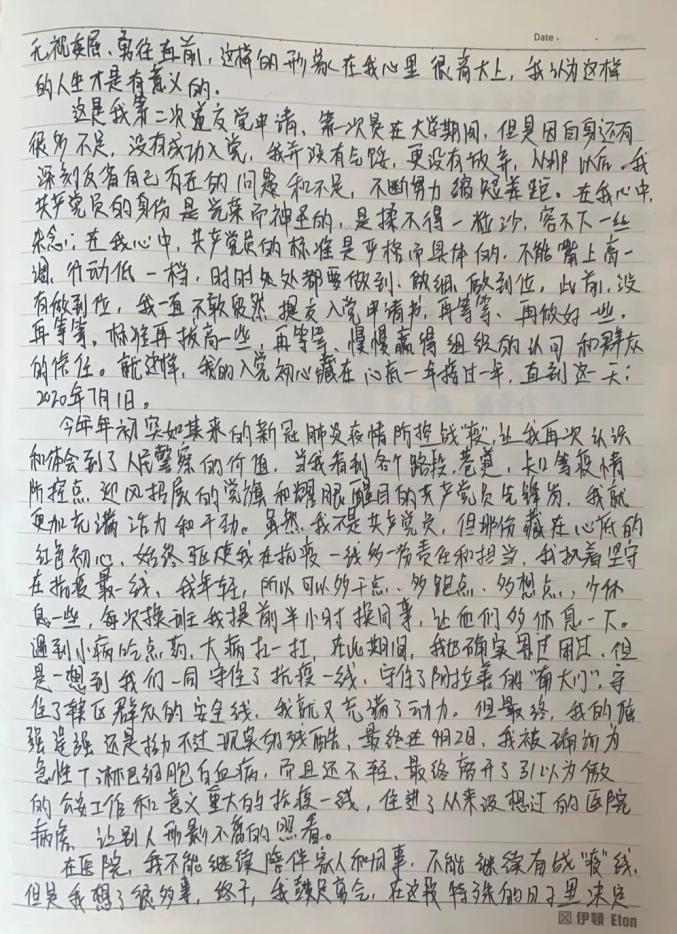 Date ·
无视安危、勇往直前,这样的形象在我心里很高大上,我认为这样
的人生才是有意义的。
这是我第二次递交入党申请。第一次是在大学期间,但是因自身还有
很多不足,没有成功入党,我并没有气馁,更没有放弃,从那以后,我
深刻反省自己存在的问题和不足,不断努力缩短差距。在我心中,
共产党员的身份是光荣而神圣的,是揉不得一粒沙,容不下一丝
杂念;在我心中,共产党员的标准是严格而具体的,不能嘴上高一
调,行动低一档,时时处处都要做到、做细、做到位,此前,没
有做到位,我一直不敢贸然提交入党申请书,再等等、再做好一些,
再等等,标准再拔高一些,再等等,慢慢赢得组织的认可和群众
的信任。就这样,我的入党初心藏在心底一年接过一年,直到这一天:
2020年7月1日。
今年年初突如其来的新冠肺炎疫情防控战“疫”,让我再次认识
和体会到了人民警察的价值,当我看到各个路段、巷道,卡口等疫情
防控点迎风招展的党旗和耀眼醒目的共产党员先锋岗,我就
更加充满活力和干劲。虽然,我不是共产党员,但那份藏在心底的
红色初心,始终驱使我在抗疫一线多一份责任和担当,我执着坚守
在抗疫最一线,我年轻,所以可以多干点、多跑点、多想点,少休
息一些,每次换班我提前半小时换同事,让他们多休息一下。
遇到小病吃点药,大病扛一扛,在此期间,我也确实累过困过,但
是一想到我们一同守住了抗疫一线,守住了阿拉善的“南大门”,守
住了辖区群众的安全线,我就又充满了动力。但最终,我的倔
强逞强还是拗不过现实的残酷,最终在4月2日,我被确诊为
急性T淋巴细胞白血病,而且还不轻,最终离开了引以为傲
的公安工作和意义重大的抗疫一线,住进了从来没想过的医院
病房,让别人形影不离的照看。
在医院,我不能继续陪伴家人和同事,不能继续奋战“疫”线,
但是我想了很多事,终于,我鼓足勇气,在这段特殊的日子里决定
伊頓 Eton